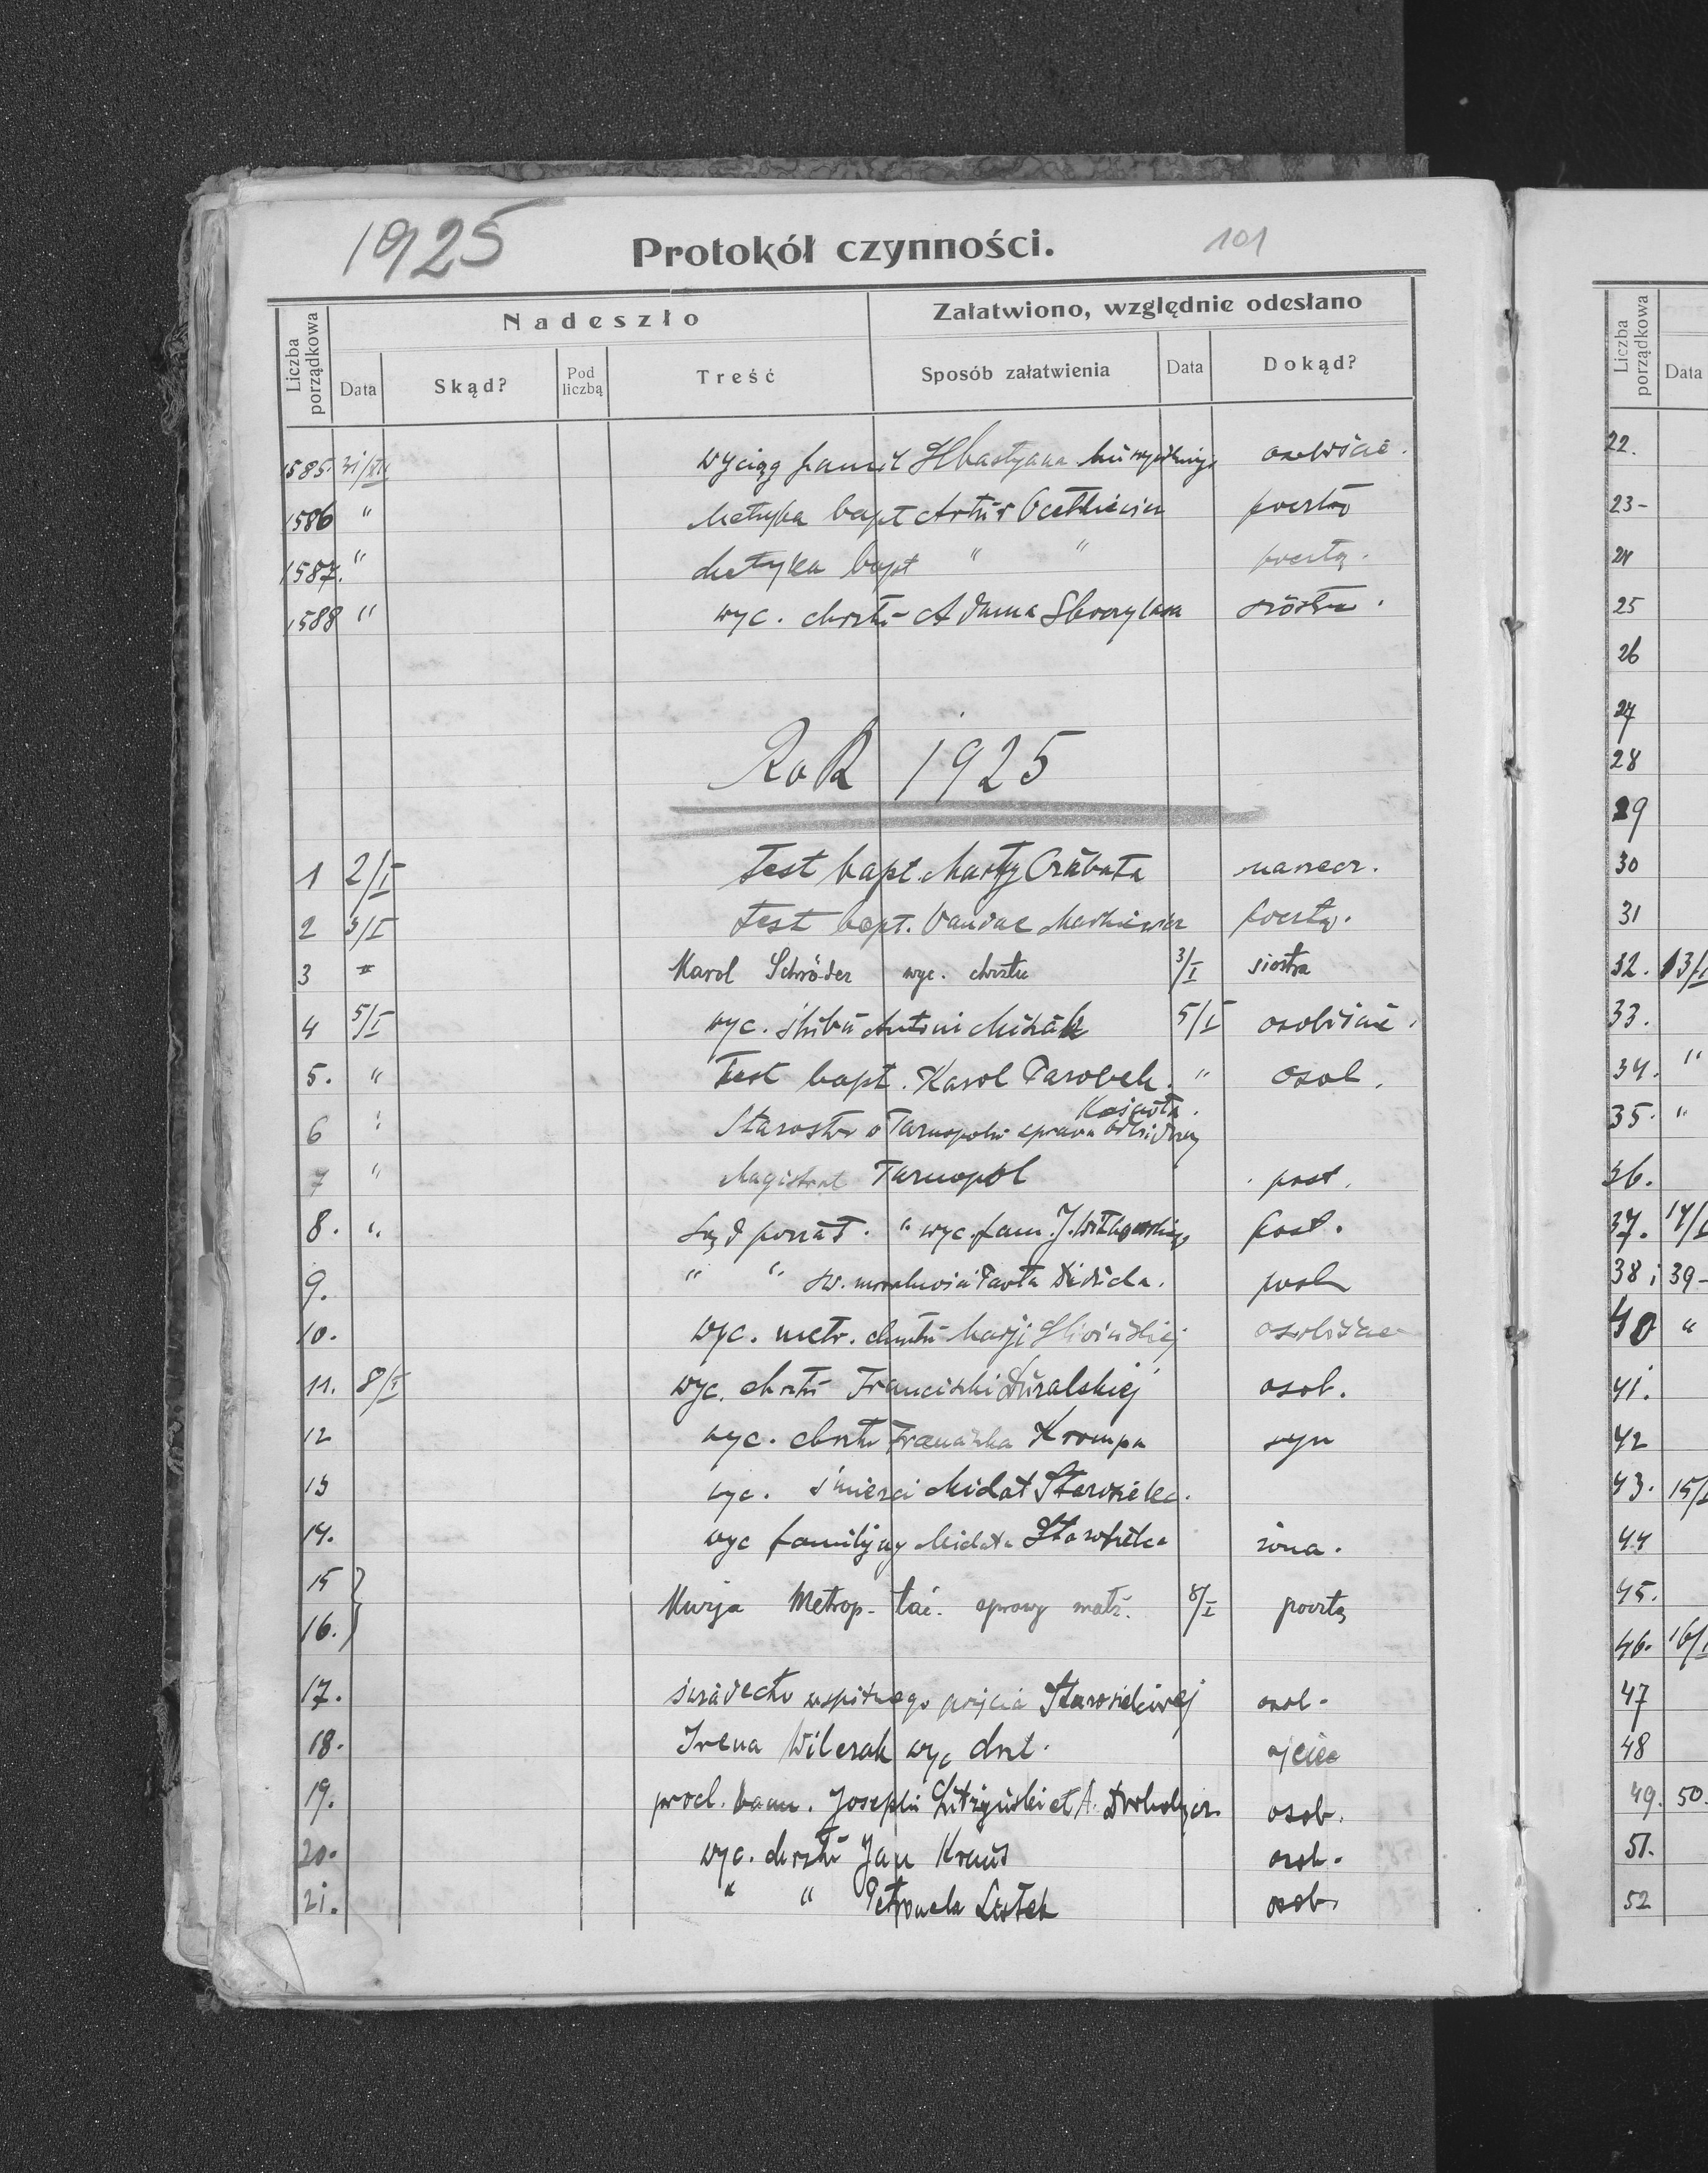 1925 Protokół czynności. 101
Liczba porządkowa
Nadeszło
Załatwiono, względnie odesłano
Data Skąd? Pod liczbą Treść Sposób załatwienia Data Dokąd?
1585. 31/XII wyciąg famil osobiście.
1586 " Metryka bapt Artur pocztą
1587. " Metyka bapt " " pocztą.
1588 " wyc. chrztu Adama siostra.
Rok 1925
1 2/I Test bapt. Marty narzecz.
2 3/I Test bapt. Vandae Markiewicz pocztą.
3 " Karol Schröder wyc. chrztu 3/I siostra
4 5/I wyc. ślubu Antoni 5/I osobiście.
5. " Test bapt. Karol Parobek. " osob.
6 " Starostwo Tarnopolu sprawa Kościoła
7 " Magistrat Tarnopol post.
8. " Sąd powiat. " wyc. fam. J. Witkowskiego post.
9. " " św. moralności Pawła post
10. wyc. metr. chrztu Marji Śliwińskiej osobiście
11. 8/I wyc. chrztu Franciszki Duralskiej osob.
12 wyc. chrztu Franciszka Krompa syn
13 wyc. śmierci Michał
14. wyc familijny Michała żona.
15
16. Kurja Metrop. łać. sprawy małż. 8/I pocztą
17. świadectwo osob.
18. Irena Wilczak wyc chrzt. ojciec
19. procl. bann. Josephi et A. osob.
20. wyc. chrztu Jan Kraus osob.
21. " " Petronela Listek osob.
Liczba porządkowa
Data
22.
23-
24
25
26
27
28
29
30
31
32. 13/I
33.
34. "
35. "
36.
37. 14/I
38 i 39-
40 "
41.
42
43. 15/I
44
45.
46. 16/I
47
48
49. 50.
51.
52